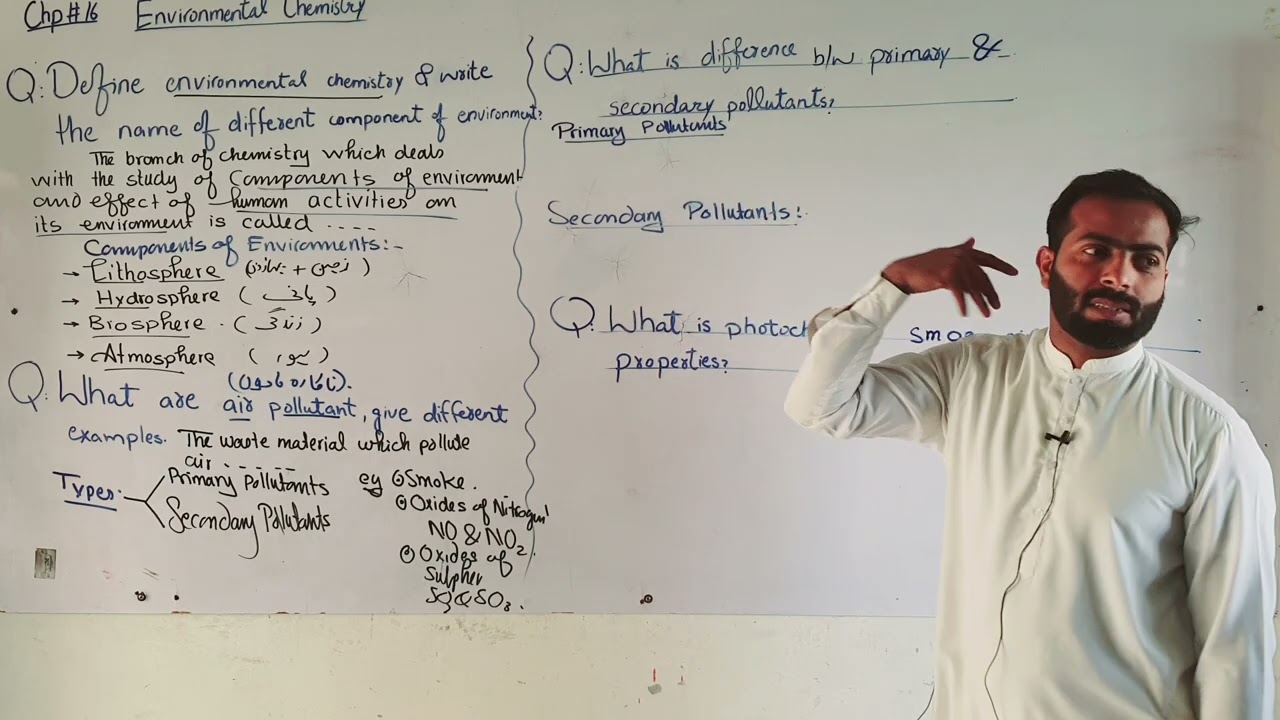 Chp#16 Environmental Chemistry
Q: Define environmental chemistry & write
the name of different component of environment?
The branch of chemistry which deals
with the study of Components of environment
and effect of human activities on
its environment is called ....
Components of Environments:-
→ Lithosphere (زمین + پہاڑ)
→ Hydrosphere (پانی)
→ Biosphere. (زندگی)
→ Atmosphere (ہوا)
Q: What are air pollutant, give different
examples. The waste material which pollute
air . - - - - -
Types:
Primary Pollutants
Secondary Pollutants
eg ⊙ Smoke.
⊙ Oxides of Nitrogen
NO & NO₂.
⊙ Oxides of
Sulpher
SO₂ & SO₃.
Q: What is difference b/w primary &
secondary pollutants?
Primary Pollutants
Secondary Pollutants:-
Q: What is
properties?